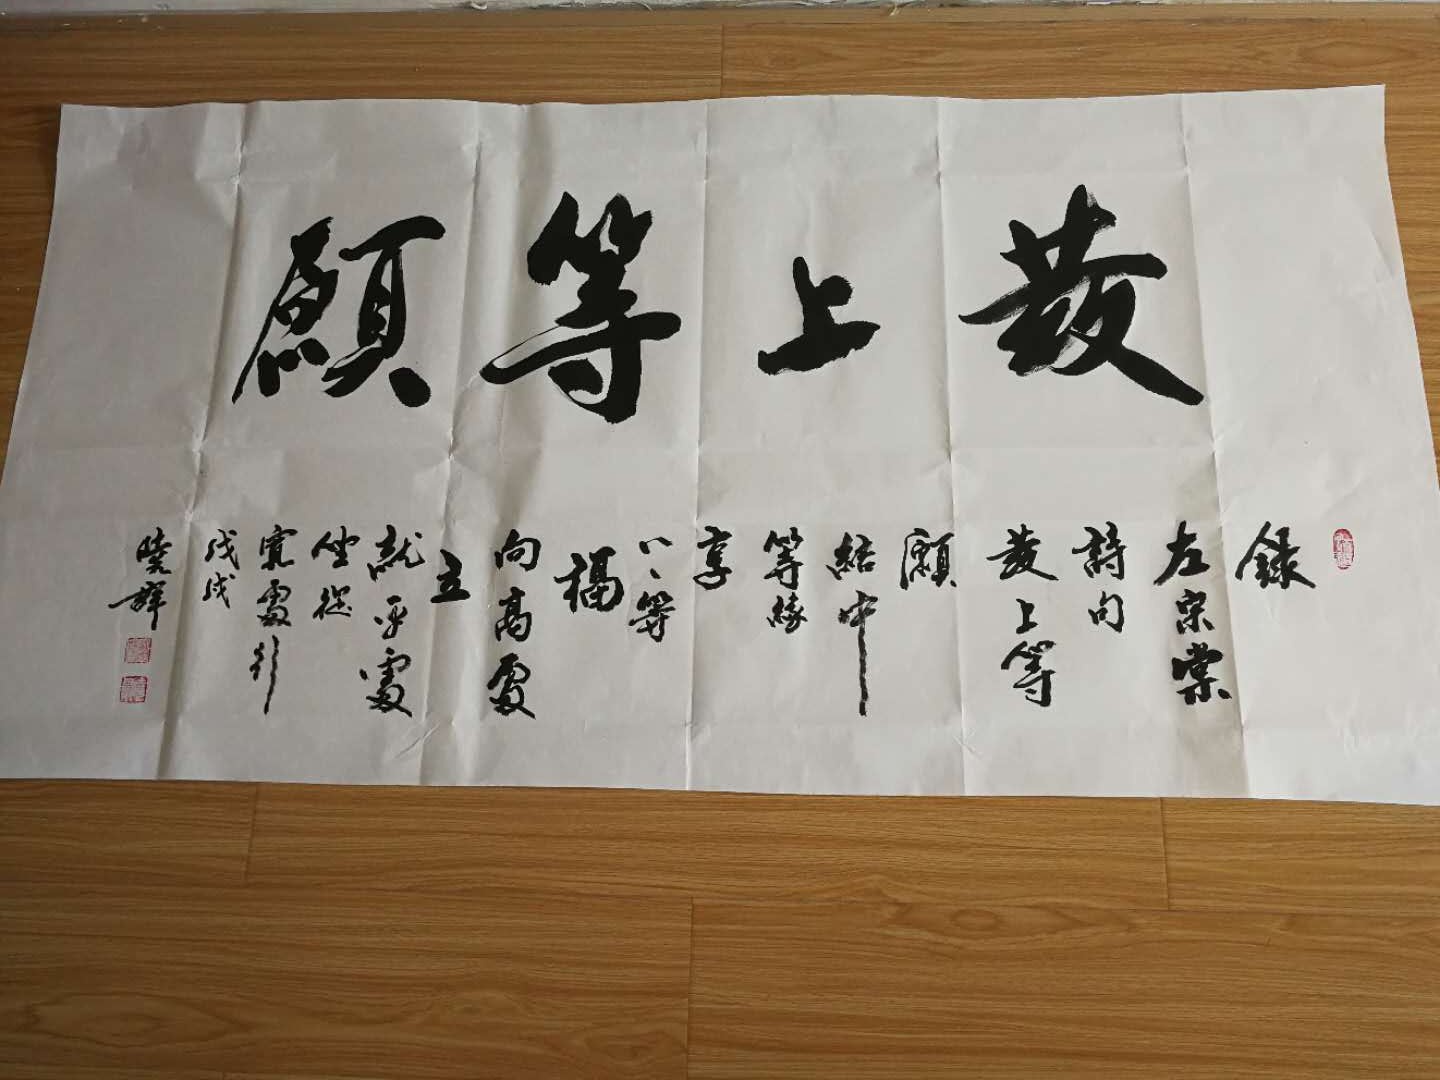 發上等願
錄
左宗棠
詩句
發上等
願
結中
等緣
享
下等
福
向高處
立
就平處
坐從
寬處行
戊戌
曉輝